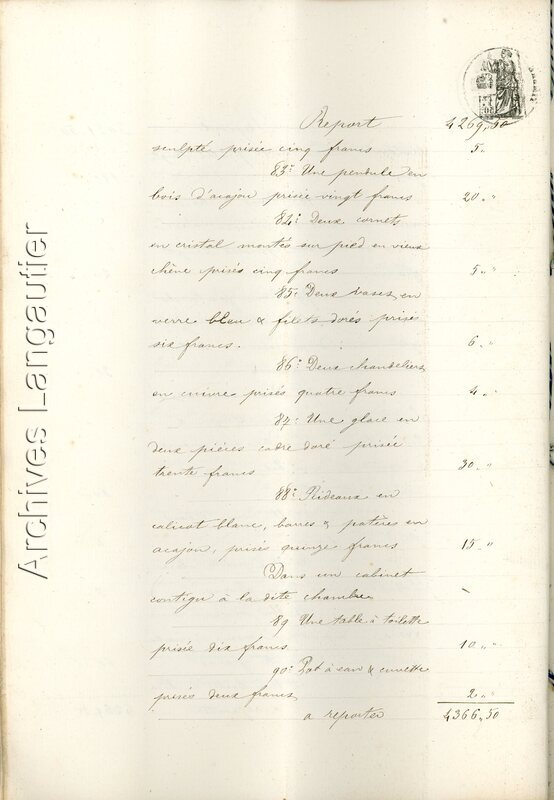 Report 4269,50
sculpté prisée cinq francs 5 "
83° Une pendule en
bois d'acajou prisée vingt francs 20 " "
84° Deux cornets
en cristal montés sur pied en vieux
chêne prisés cinq francs 5 " "
85° Deux vases en
verre bleu & filets dorés prisés
six francs. 6 "
86° Deux chandeliers
en cuivre prisés quatre francs 4 "
87° Une glace en
deux pièces cadre doré prisée
trente francs 30 "
88° Rideaux en
calicot blanc, barres & patères en
acajou, prisés quinze francs 15 "
Dans un cabinet
contigu à la dite chambre
89 Une table à toilette
prisée dix francs 10 "
90° Pot à eau & cuvette
prisés deux francs 2 "
a reporter 4366,50
Archives Langautier